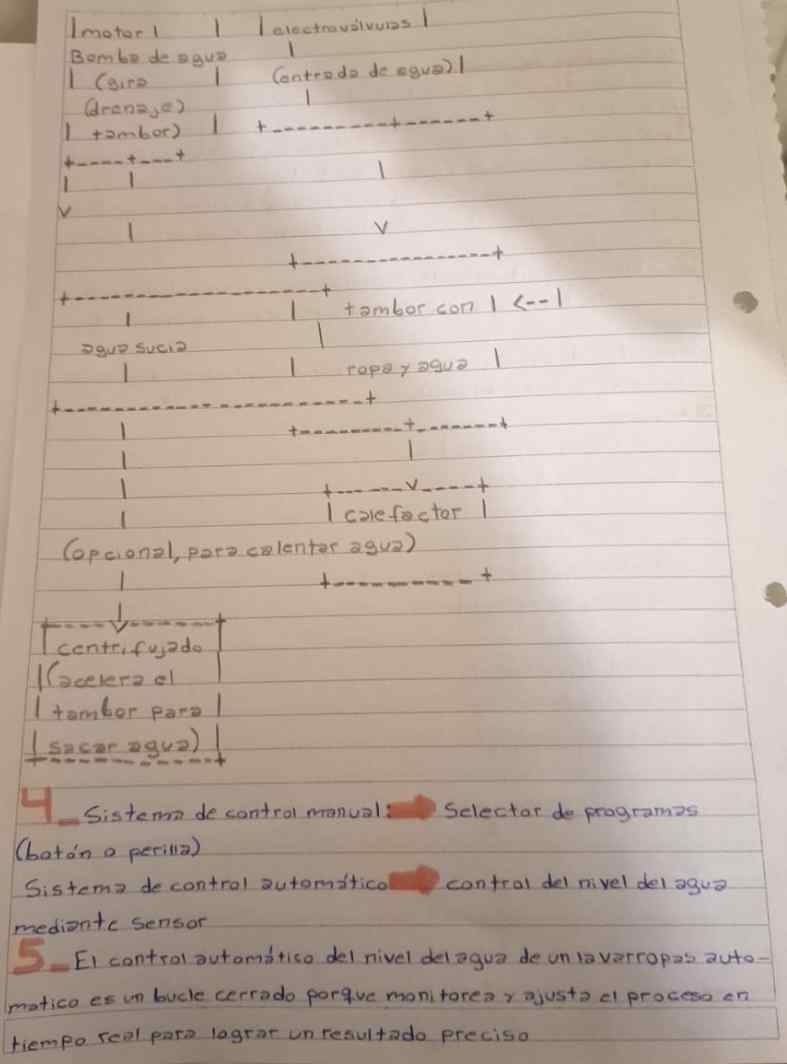 | motor | | | electroválvulas |
Bomba de agua |
| (gira | (entrada de agua) |
(drenaje) |
| tambor) | +---------+------+
+----+---+
| | |
v
| v
+----------------+
+-------------------+
| | tambor con | <--|
agua sucia |
| | ropa y agua |
+----------------------+
| +---------+-------+
| |
| +------v----+
| | calefactor |
(opcional, para calentar agua)
| +----------+
|
+-----v-------+
| centrifujado |
|(acelera el |
| tambor para |
| sacar agua) |
+------------+
4- Sistema de control manual: ➡ Selector de programas
(botón o perilla)
Sistema de control automático ➡ control del nivel del agua
mediante sensor
5- El control automático del nivel del agua de un lavarropas auto-
matico es un bucle cerrado porque monitorea y ajusta el proceso en
tiempo real para lograr un resultado preciso